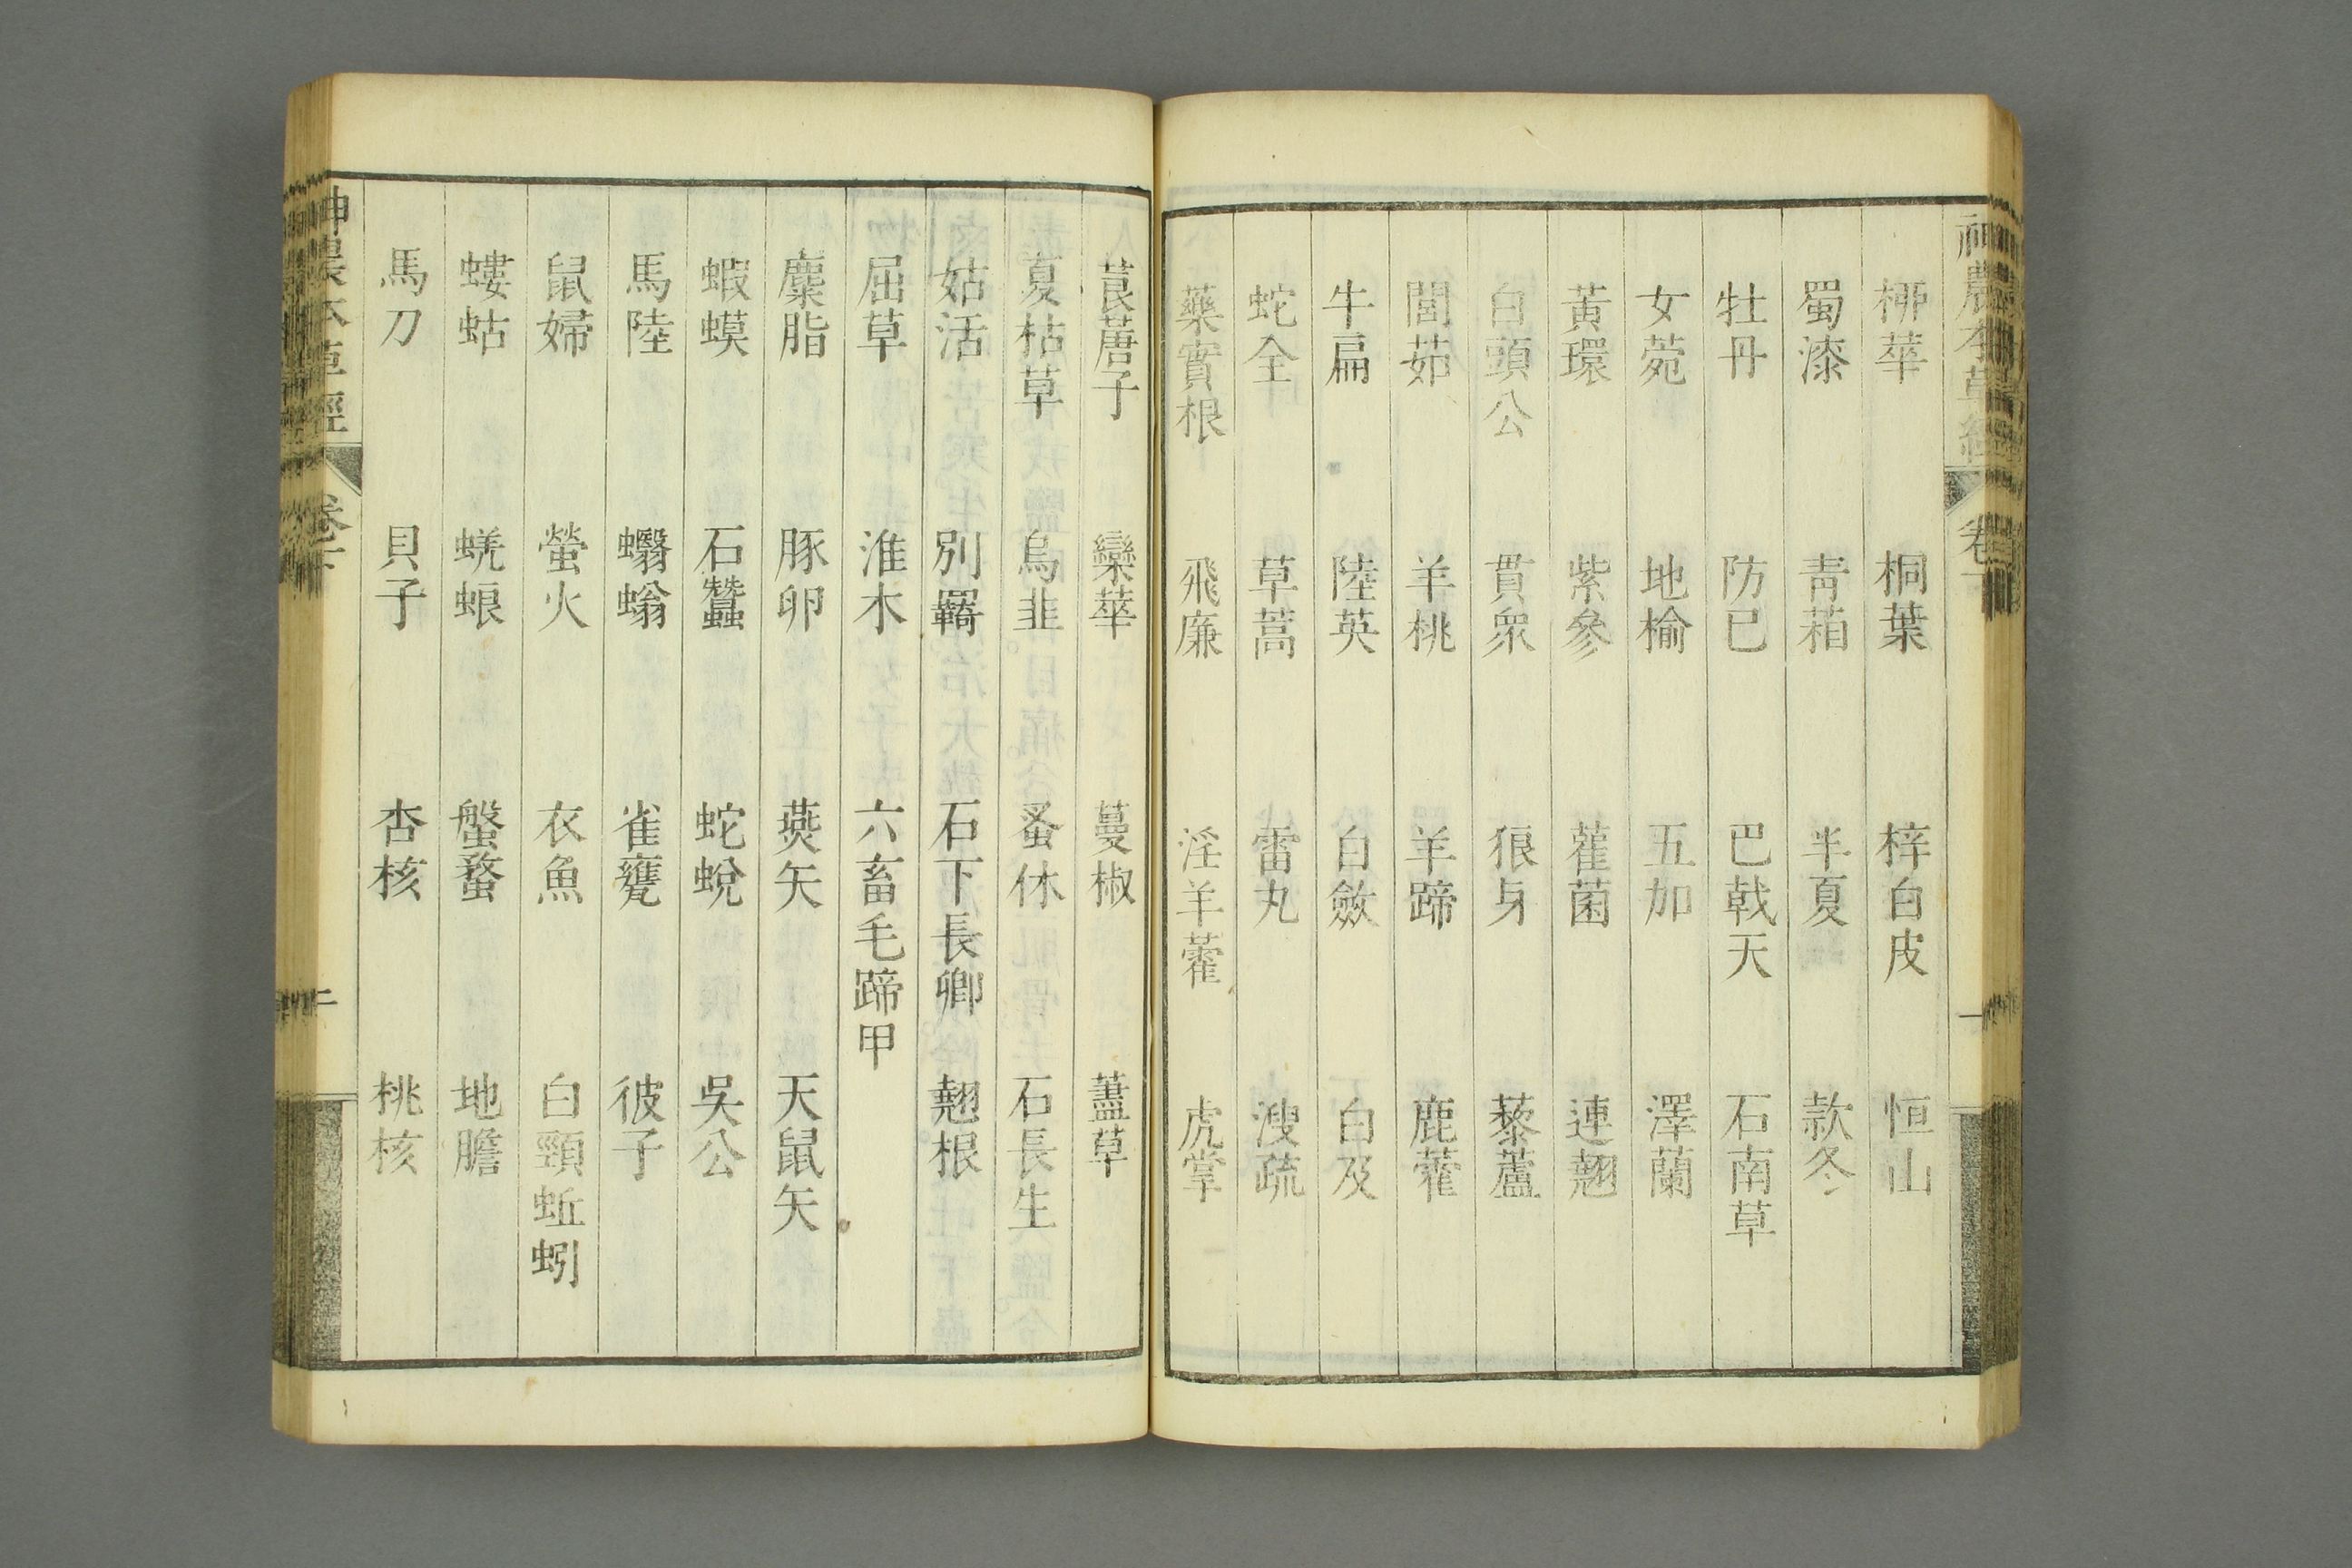 神農本草經 卷下 一
栁華 桐葉 梓白皮 恒山
蜀漆 青葙 半夏 款冬
牡丹 防已 巴戟天 石南草
女菀 地榆 五加 澤蘭
黃環 紫參 雚菌 連翹
白頭公 貫眾 狼牙 藜蘆
閭茹 羊桃 羊蹄 鹿藿
牛扁 陸英 白斂 白及
蛇全 草蒿 雷丸 溲疏
藥實根 飛廉 淫羊藿 虎掌
莨蓎子 欒華 蔓椒 藎草
夏枯草 烏韭 蚤休 石長生
姑活 別羇 石下長卿 翹根
屈草 淮木 六畜毛蹄甲
麋脂 豚卵 燕矢 天鼠矢
蝦蟆 石蠶 蛇蛻 吳公
馬陸 蠮螉 雀甕 彼子
鼠婦 螢火 衣魚 白頸蚯蚓
螻蛄 蜣蜋 盤蝥 地膽
馬刀 貝子 杏核 桃核
神農本草經 卷下